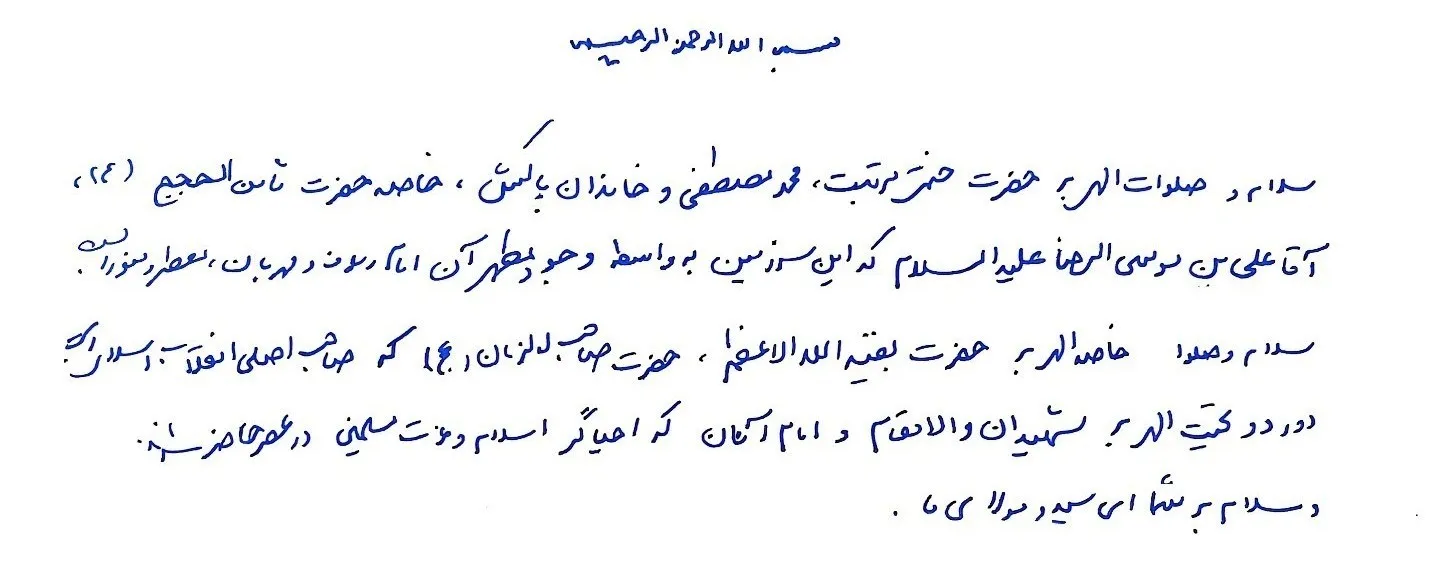 بسم الله الرحمن الرحیم
سلام و صلوات الهی بر حضرت ختمی مرتبت، محمد مصطفی و خاندان پاکش، خاصه حضرت ثامن الحجج (ع)،
آقا علی بن موسی الرضا علیه السلام که این سرزمین به واسطه وجود مطهر آن امام رئوف و مهربان، معطر و منور است.
سلام و صلوات خاصه الهی بر حضرت بقیة الله الاعظم، حضرت صاحب الزمان (عج) که صاحب اصلی انقلاب اسلامی است
درود و تحیت الهی بر شهیدان والامقام و امام آنان که احیاگر اسلام و عزت مسلمین در عصر حاضر شدند.
و سلام بر شما ای سید و مولای ما.